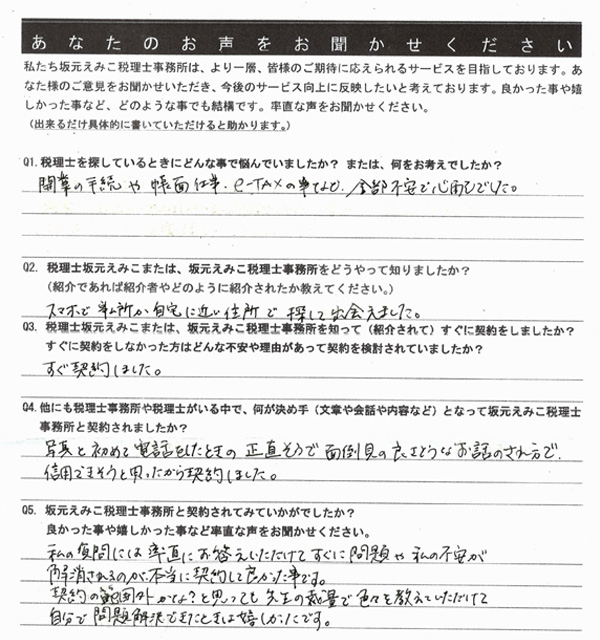 あなたのお声をお聞かせください
私たち坂元えみこ税理士事務所は、より一層、皆様のご期待に応えられるサービスを目指しております。あ
なた様のご意見をお聞かせいただき、今後のサービス向上に反映したいと考えております。良かった事や嬉
しかった事など、どのような事でも結構です。率直な声をお聞かせください。
(出来るだけ具体的に書いていただけると助かります。)
Q1. 税理士を探しているときにどんな事で悩んでいましたか？ または、何をお考えでしたか？
開業の手続や帳面仕事・e-TAXの事など、全部不安で心配でした。
Q2. 税理士坂元えみこまたは、坂元えみこ税理士事務所をどうやって知りましたか？
(紹介であれば紹介者やどのように紹介されたか教えてください。)
スマホで事務所か自宅に近い住所で探して出会えました。
Q3. 税理士坂元えみこまたは、坂元えみこ税理士事務所を知って(紹介されて)すぐに契約をしましたか？
すぐに契約をしなかった方はどんな不安や理由があって契約を検討されていましたか？
すぐ契約しました。
Q4. 他にも税理士事務所や税理士がいる中で、何が決め手(文章や会話や内容など)となって坂元えみこ税理士
事務所と契約されましたか？
写真と初めて電話をしたときの正直そうで面倒見の良さそうなお話のされ方で、
信用できそうと思ったから契約しました。
Q5. 坂元えみこ税理士事務所と契約されてみていかがでしたか？
良かった事や嬉しかった事など率直な声をお聞かせください。
私の質問には率直にお答えいただけてすぐに問題や私の不安が
解消されるのが、本当に契約して良かった事です。
契約の範囲外かな？と思っても先生の裁量で色々を教えていただけて
自分で問題解決できたときは嬉しかったです。